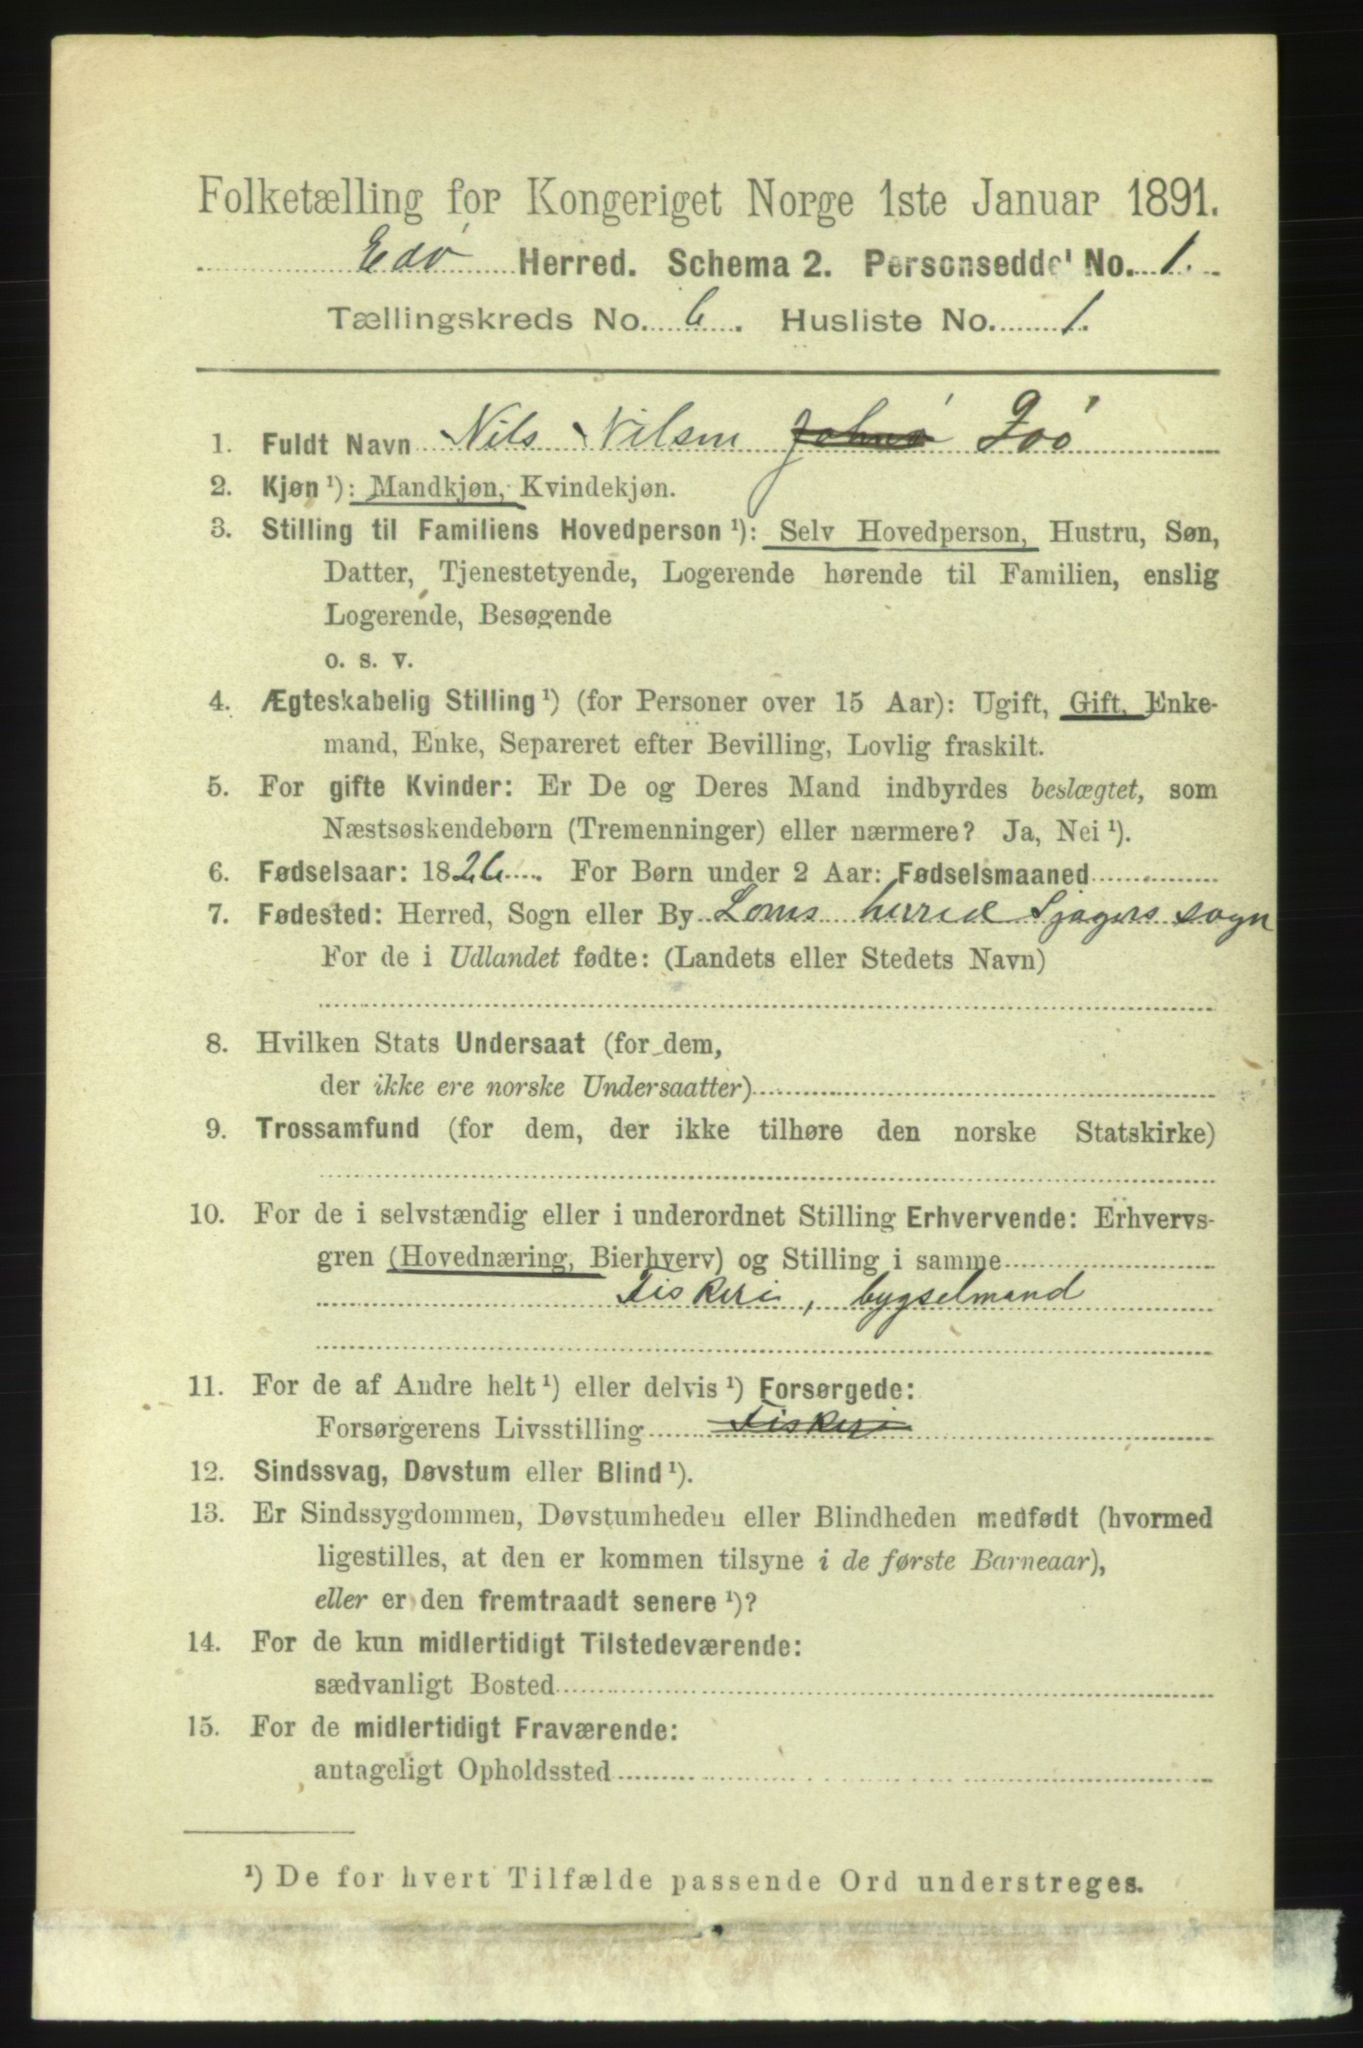 Folketælling for Kongeriget Norge 1ste Januar 1891.
Edø Herred. Schema 2. Personseddel No. 1.
Tællingskreds No. 6. Husliste No. 1.
1. Fuldt Navn Nils Nilsen
2. Kjøn ¹): Mandkjøn, Kvindekjøn.
3. Stilling til Familiens Hovedperson ¹): Selv Hovedperson, Hustru, Søn,
Datter, Tjenestetyende, Logerende hørende til Familien, enslig
Logerende, Besøgende
o. s. v.
4. Ægteskabelig Stilling ¹) (for Personer over 15 Aar): Ugift, Gift, Enke-
mand, Enke, Separeret efter Bevilling, Lovlig fraskilt.
5. For gifte Kvinder: Er De og Deres Mand indbyrdes beslægtet, som
Næstsøskendebørn (Tremenninger) eller nærmere? Ja, Nei ¹).
6. Fødselsaar: 1826. For Børn under 2 Aar: Fødselsmaaned
7. Fødested: Herred, Sogn eller By Loms herred sogn
For de i Udlandet fødte: (Landets eller Stedets Navn)
8. Hvilken Stats Undersaat (for dem,
der ikke ere norske Undersaatter)
9. Trossamfund (for dem, der ikke tilhøre den norske Statskirke)
10. For de i selvstændig eller i underordnet Stilling Erhvervende: Erhvervs-
gren (Hovednæring, Bierhverv) og Stilling i samme
Fiskeri, bygselmand
11. For de af Andre helt ¹) eller delvis ¹) Forsørgede:
Forsørgerens Livsstilling Fiskeri
12. Sindssvag, Døvstum eller Blind ¹).
13. Er Sindssygdommen, Døvstumheden eller Blindheden medfødt (hvormed
ligestilles, at den er kommen tilsyne i de første Barneaar),
eller er den fremtraadt senere ¹)?
14. For de kun midlertidigt Tilstedeværende:
sædvanligt Bosted
15. For de midlertidigt Fraværende:
antageligt Opholdssted
¹) De for hvert Tilfælde passende Ord understreges.